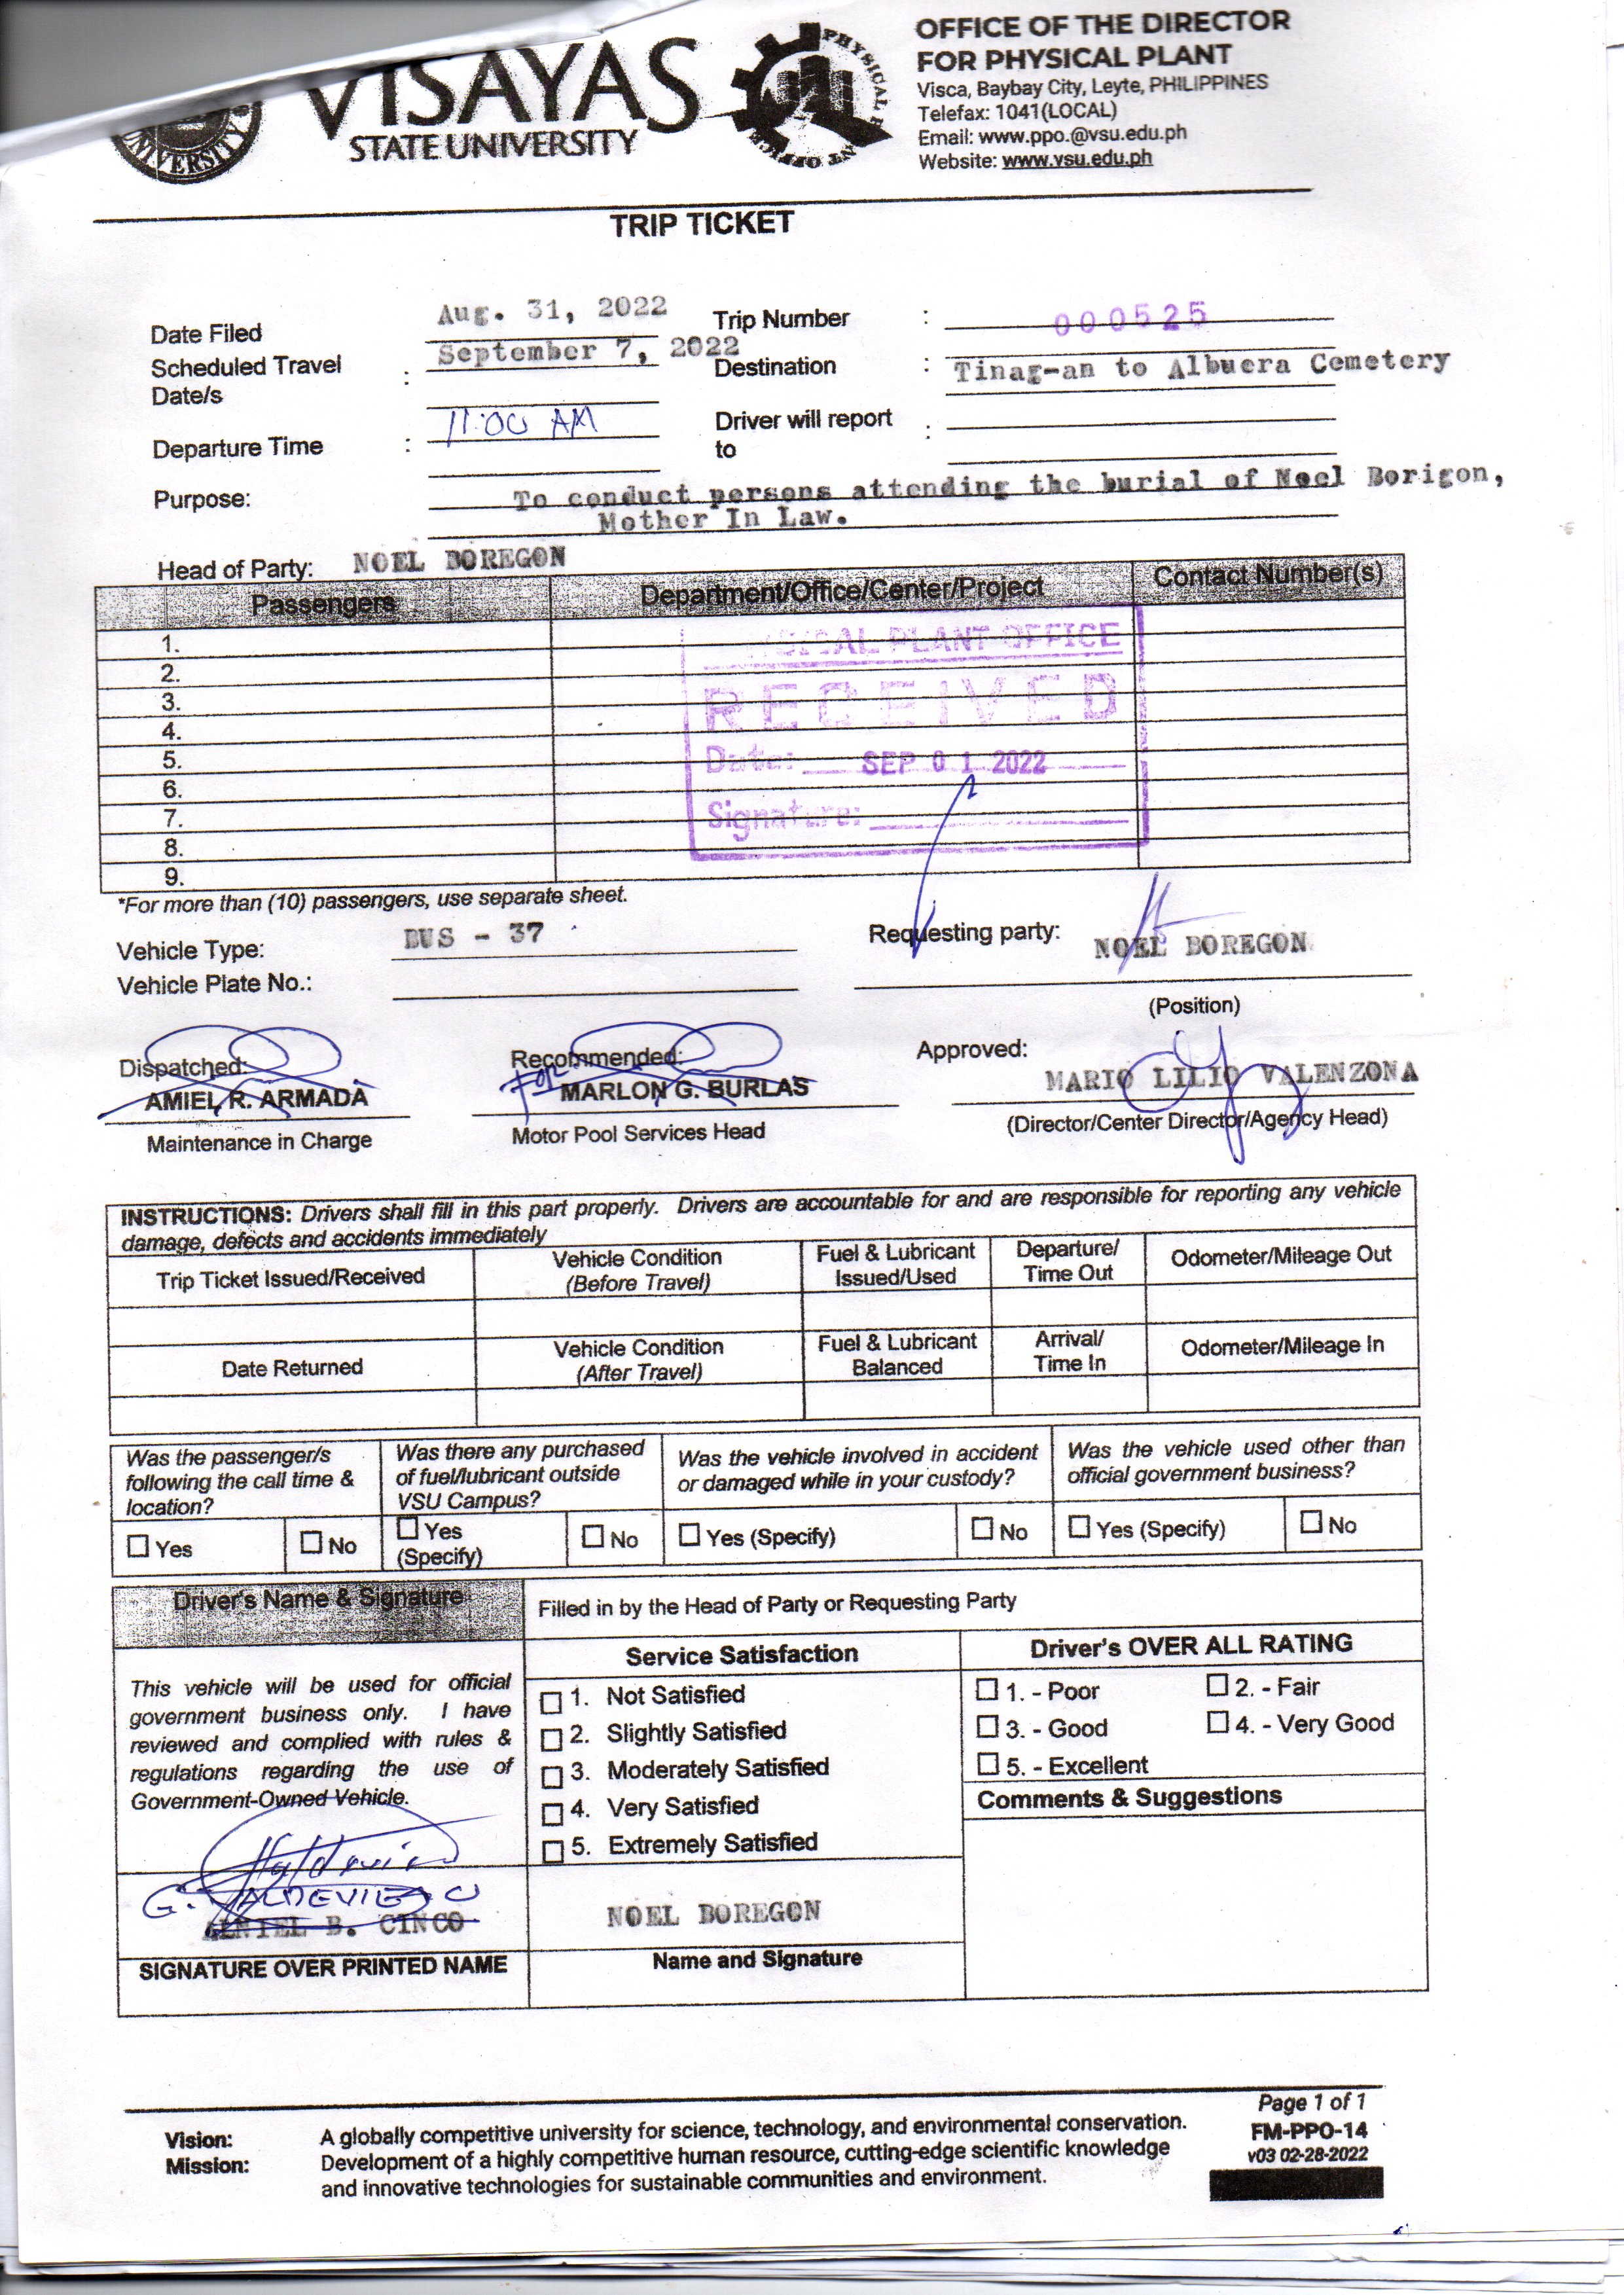 VISAYAS
STATE UNIVERSITY
UNIVERSITY
OFFICE OF THE DIRECTOR
FOR PHYSICAL PLANT
Visca, Baybay City, Leyte, PHILIPPINES
Telefax: 1041(LOCAL)
Email: www.ppo.@vsu.edu.ph
Website: www.vsu.edu.ph
TRIP TICKET
Date Filed Aug. 31, 2022 Trip Number : 000525
Scheduled Travel Date/s : September 7, 2022 Destination : Tinag-an to Albuera Cemetery
Departure Time : 11:00 AM Driver will report to :
Purpose: To conduct persons attending the burial of Noel Borigon,
Mother In Law.
Head of Party: NOEL BOREGON
Passengers Department/Office/Center/Project Contact Number(s)
1.
2.
3.
4.
5.
6.
7.
8.
9.
PLANT OFFICE
RECEIVED
Date: SEP 01 2022
Signature:
*For more than (10) passengers, use separate sheet.
Vehicle Type: BUS - 37 Requesting party: NOEL BOREGON
Vehicle Plate No.:
(Position)
Dispatched: Recommended: Approved:
AMIEL R. ARMADA For MARLON G. BURLAS MARIO LILIO VALENZONA
Maintenance in Charge Motor Pool Services Head (Director/Center Director/Agency Head)
INSTRUCTIONS: Drivers shall fill in this part properly. Drivers are accountable for and are responsible for reporting any vehicle
damage, defects and accidents immediately
Trip Ticket Issued/Received Vehicle Condition (Before Travel) Fuel & Lubricant Issued/Used Departure/ Time Out Odometer/Mileage Out
Date Returned Vehicle Condition (After Travel) Fuel & Lubricant Balanced Arrival/ Time In Odometer/Mileage In
Was the passenger/s following the call time & location?
Yes No
Was there any purchased of fuel/lubricant outside VSU Campus?
Yes (Specify) No
Was the vehicle involved in accident or damaged while in your custody?
Yes (Specify) No
Was the vehicle used other than official government business?
Yes (Specify) No
Driver's Name & Signature
This vehicle will be used for official
government business only. I have
reviewed and complied with rules &
regulations regarding the use of
Government-Owned Vehicle.
G. VALDEVIESO
B. CINCO
SIGNATURE OVER PRINTED NAME
Filled in by the Head of Party or Requesting Party
Service Satisfaction
1. Not Satisfied
2. Slightly Satisfied
3. Moderately Satisfied
4. Very Satisfied
5. Extremely Satisfied
NOEL BOREGON
Name and Signature
Driver's OVER ALL RATING
1. - Poor 2. - Fair
3. - Good 4. - Very Good
5. - Excellent
Comments & Suggestions
Page 1 of 1
FM-PPO-14
v03 02-28-2022
Vision: A globally competitive university for science, technology, and environmental conservation.
Mission: Development of a highly competitive human resource, cutting-edge scientific knowledge
and innovative technologies for sustainable communities and environment.